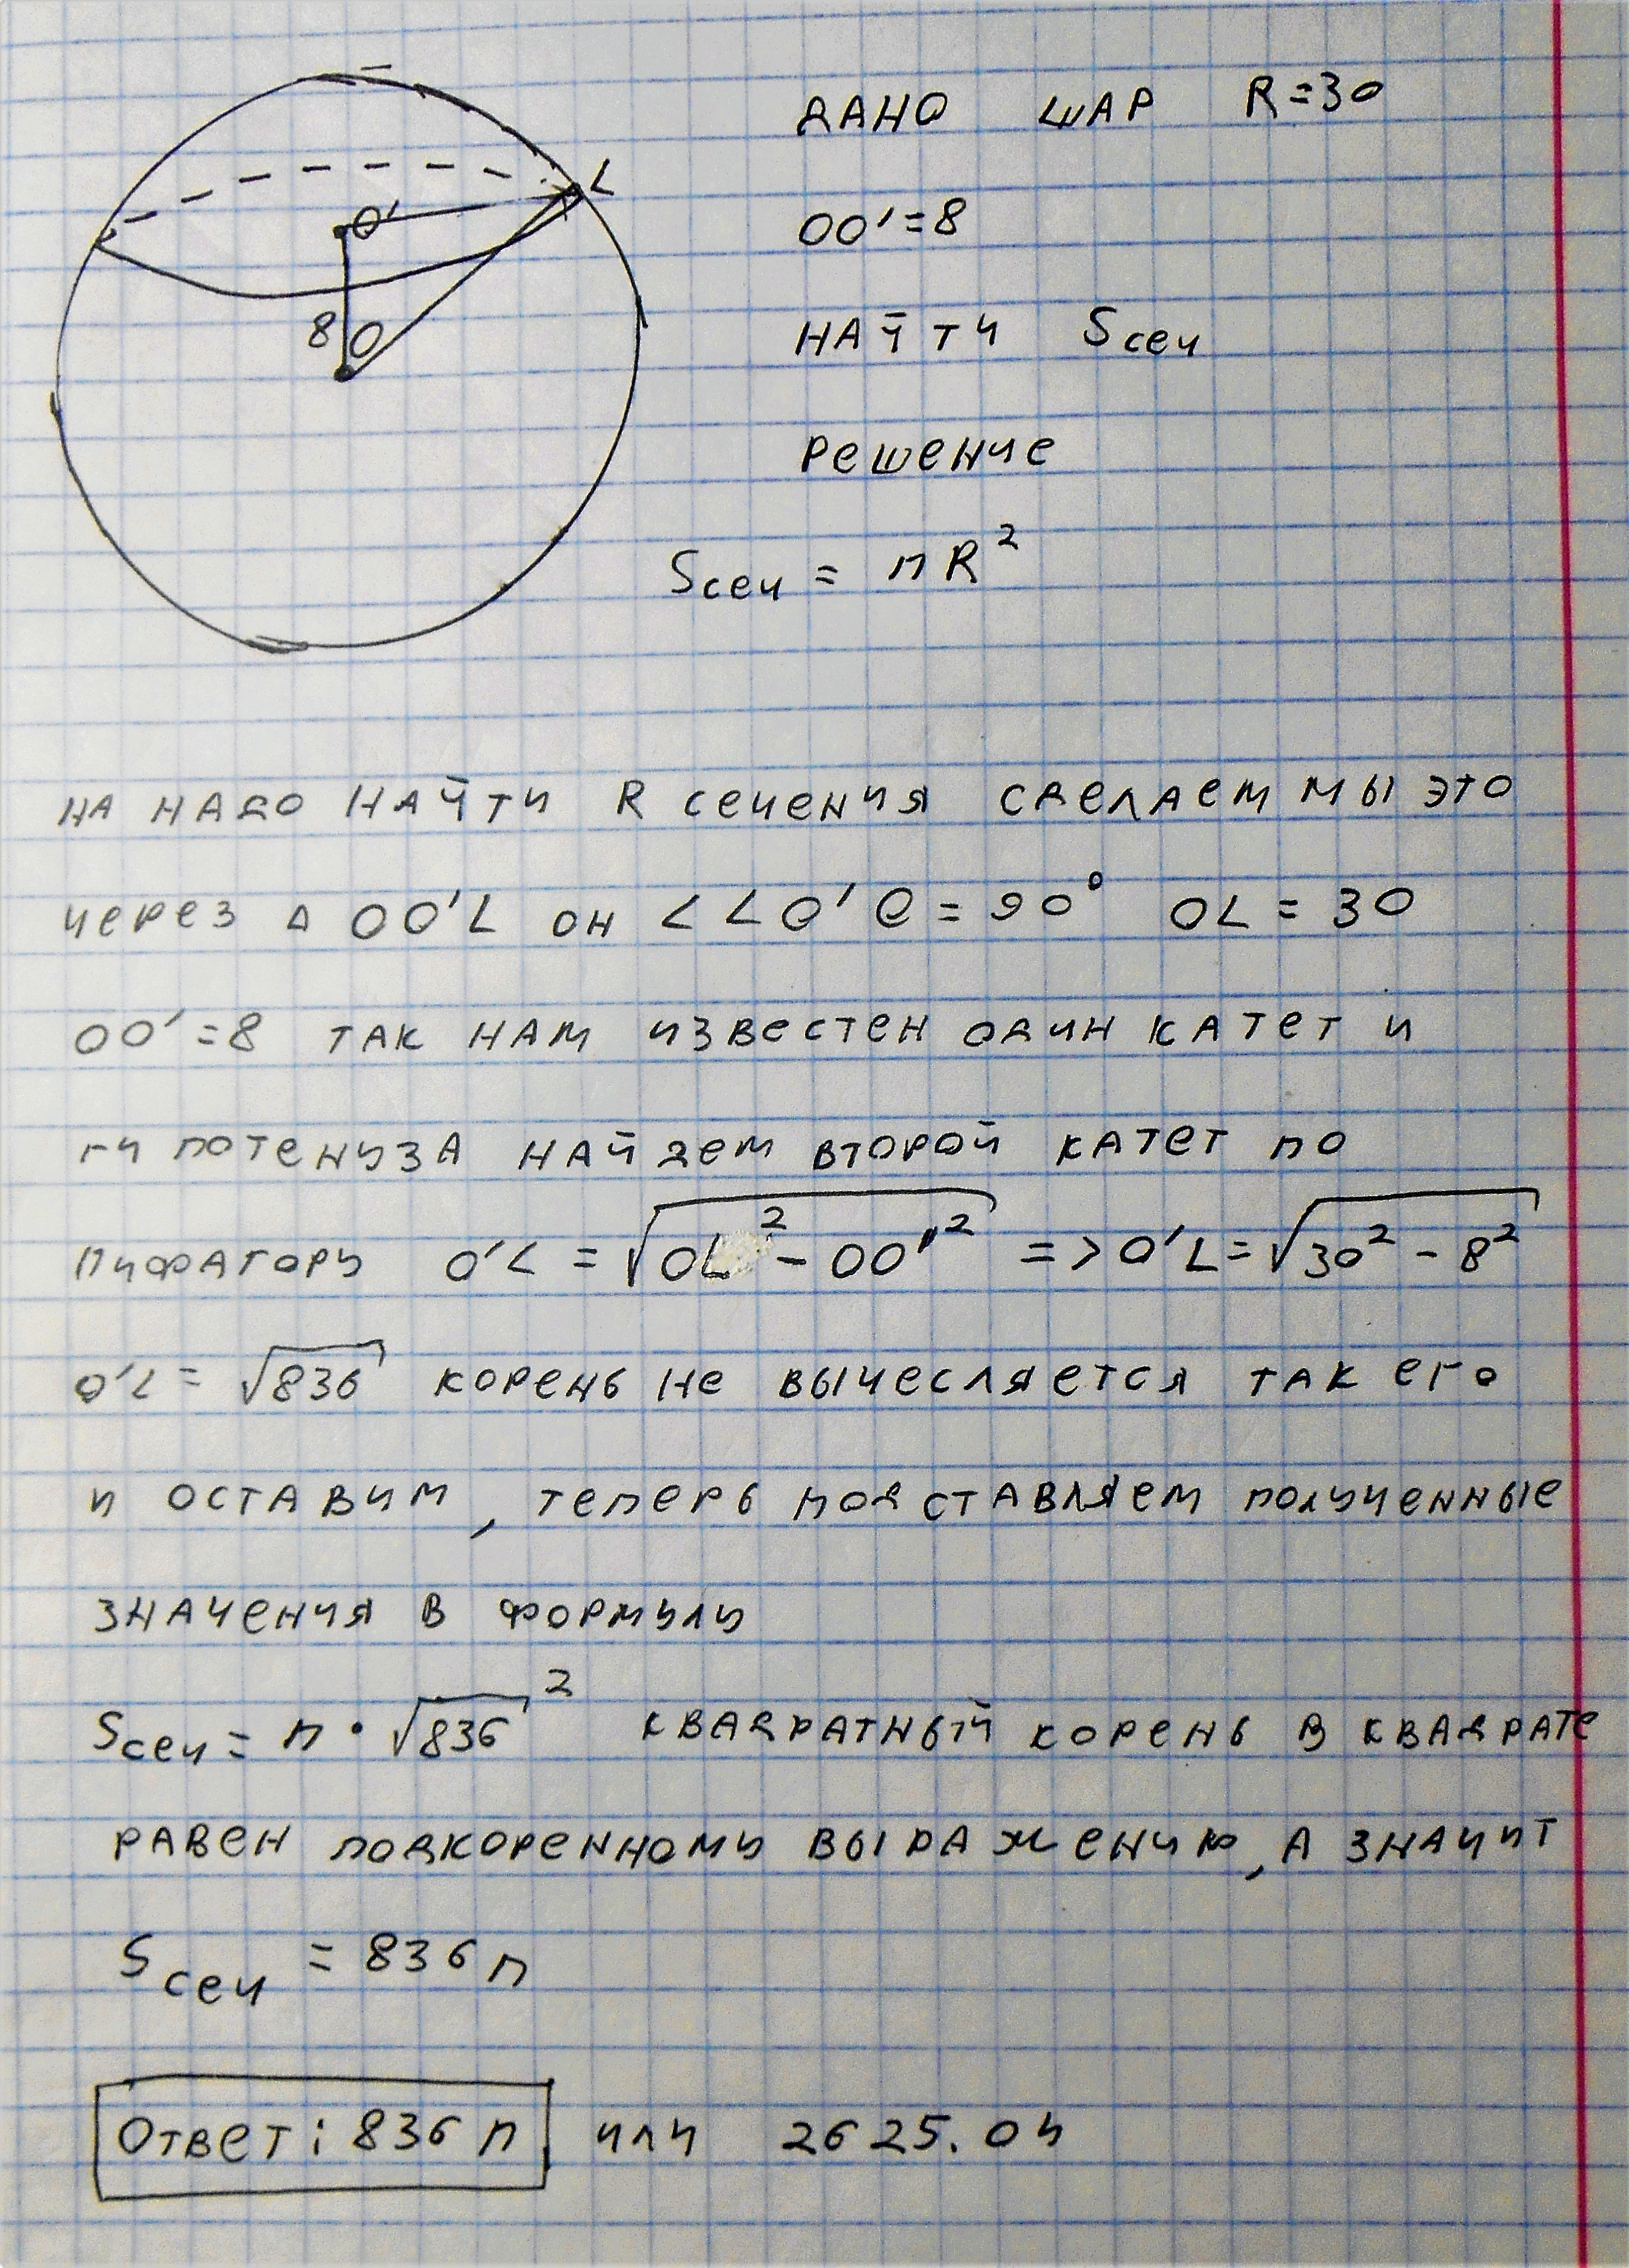 ДАНО ШАР R=30
L
O'
OO'=8
8 O
НАЙТИ Sсеч
РЕШЕНИЕ
Sсеч = πR²
НА НАДО НАЙТИ R СЕЧЕНИЯ СДЕЛАЕМ МЫ ЭТО
ЧЕРЕЗ Δ OO'L ОН ∠LO'O = 90° OL = 30
OO' = 8 ТАК НАМ ИЗВЕСТЕН ОДИН КАТЕТ И
ГИПОТЕНУЗА НАЙДЕМ ВТОРОЙ КАТЕТ ПО
ПИФАГОРУ O'L = √(OL² - OO'²) => O'L = √(30² - 8²)
O'L = √836 КОРЕНЬ НЕ ВЫЧЕСЛЯЕТСЯ ТАК ЕГО
И ОСТАВИМ, ТЕПЕРЬ ПОДСТАВЛЯЕМ ПОЛУЧЕННЫЕ
ЗНАЧЕНИЯ В ФОРМУЛУ
Sсеч = π • √836² КВАДРАТНЫЙ КОРЕНЬ В КВАДРАТЕ
РАВЕН ПОДКОРЕННОМУ ВЫРАЖЕНИЮ, А ЗНАЧИТ
Sсеч = 836π
ОТВЕТ: 836π ИЛИ 2625.04